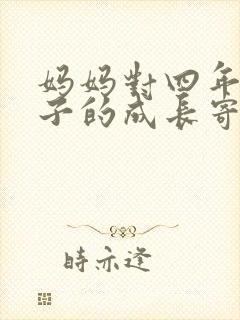 妈妈對四年
子的成長寄
時亦逢